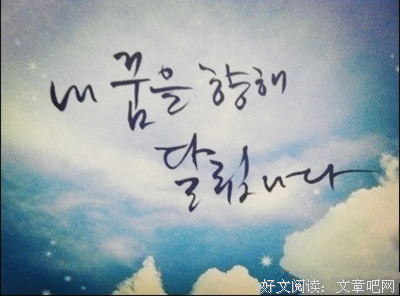 내 꿈을 향해
달립니다
好文阅读：文章吧网